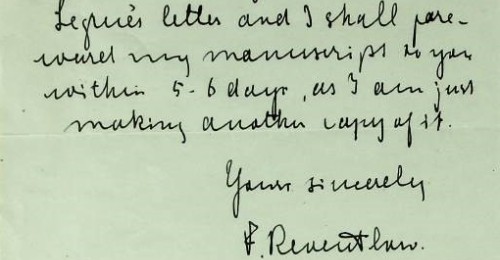 Legué's letter and I shall fore-
ward my manuscript to you
within 5-6 days, as I am just
making another copy of it.
Yours sincerely
F. Reventlow.